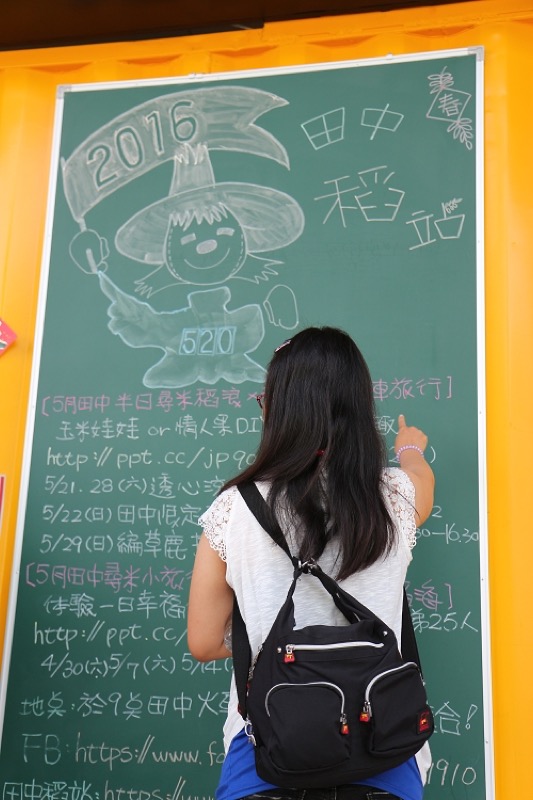 2016
春
田中
稻
站
520
[5月田中半日尋米稻浪 車旅行]
玉米娃娃 or 情人果DI
http://ppt.cc/jp9
5/21.28(六)透心涼
5/22(日)田中限定 2
5/29(日)編草鹿 30-16:30
[5月田中尋米小旅行 ]
體驗一日幸福 第25人
http://ppt.cc/
4/30(六)5/7(六)5/14(
地點:於9點田中火車 合!
FB:https://www.fa 1910
田中稻站:https://www